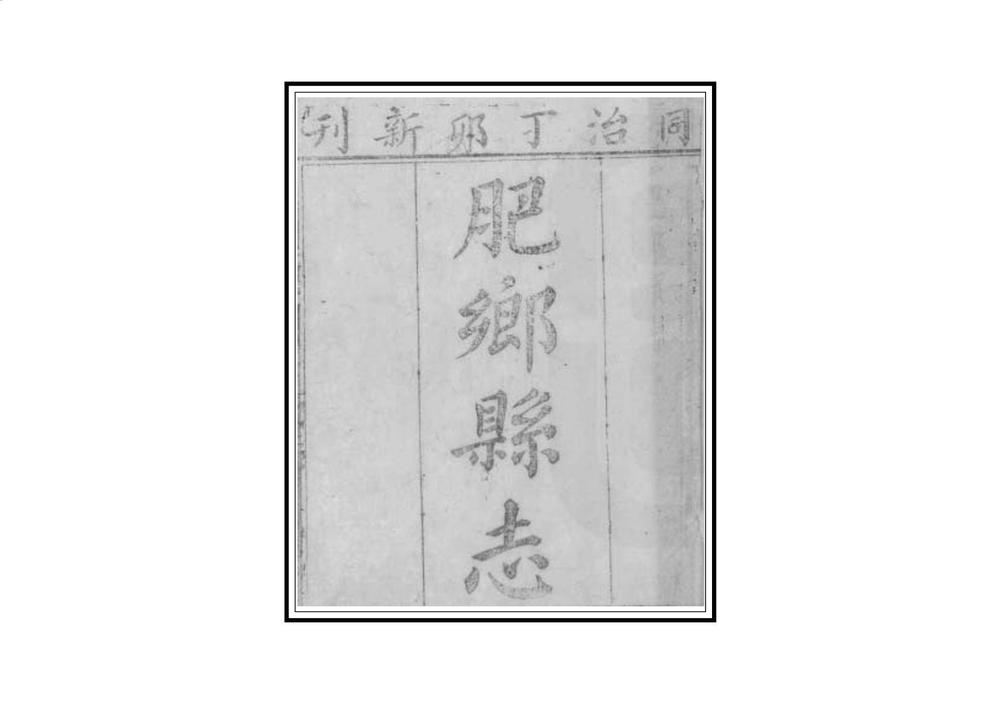 同治丁夘新刊
肥鄉縣志